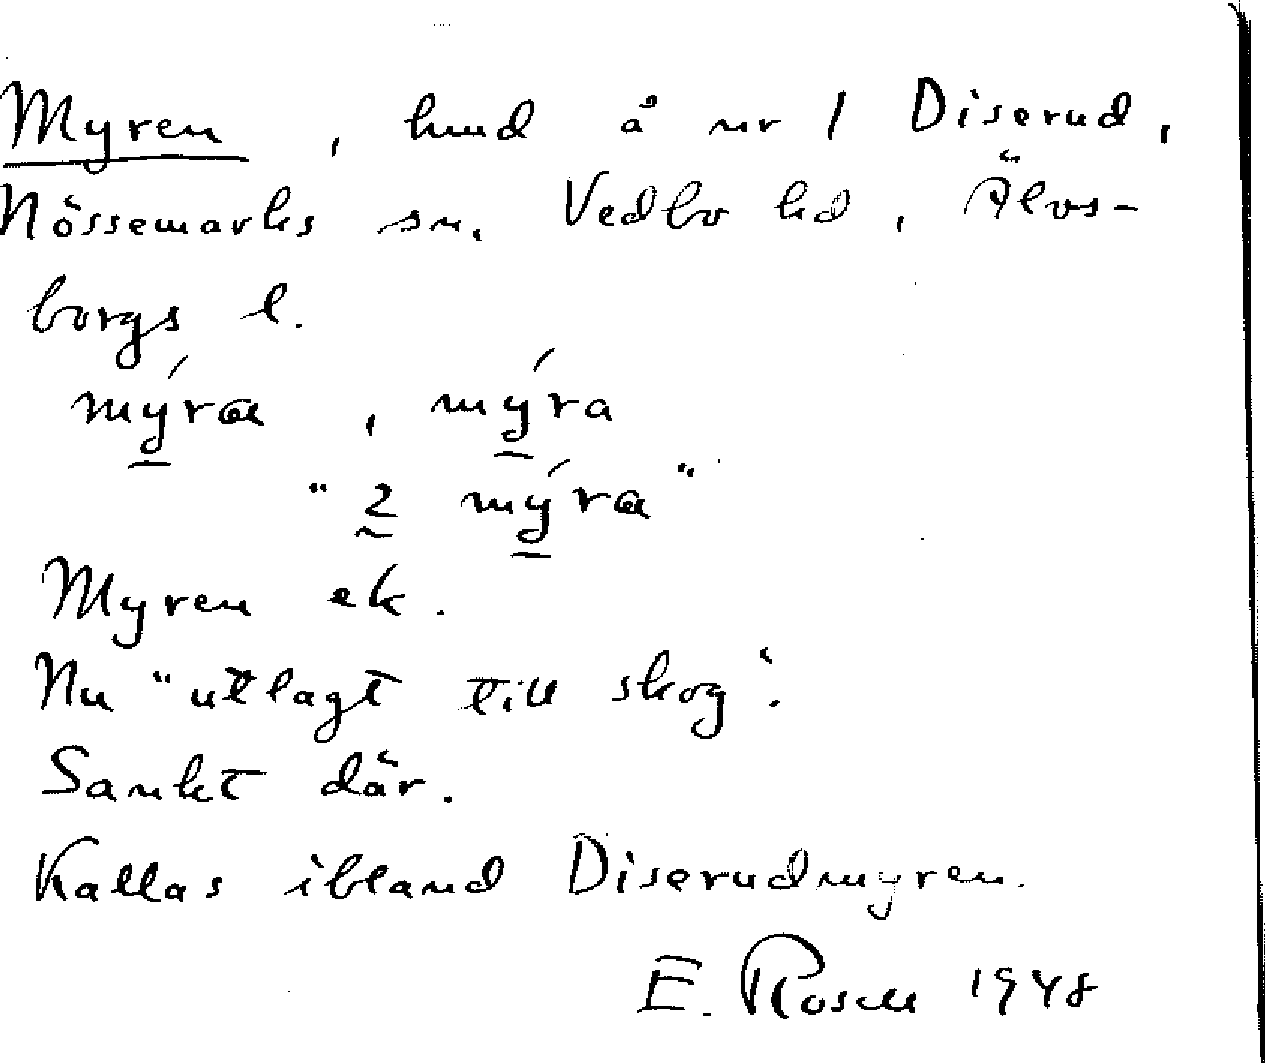 Myren, hmd å nr 1 Diserud,
Nössemarks sn. Vedbo hd, Älvs-
borgs l.
mýra, mýra
"2 mýra"
Myren ek.
Nu "utlagt till skog".
Sankt där.
Kallas ibland Diserudmyren.
E. Rosell 1948